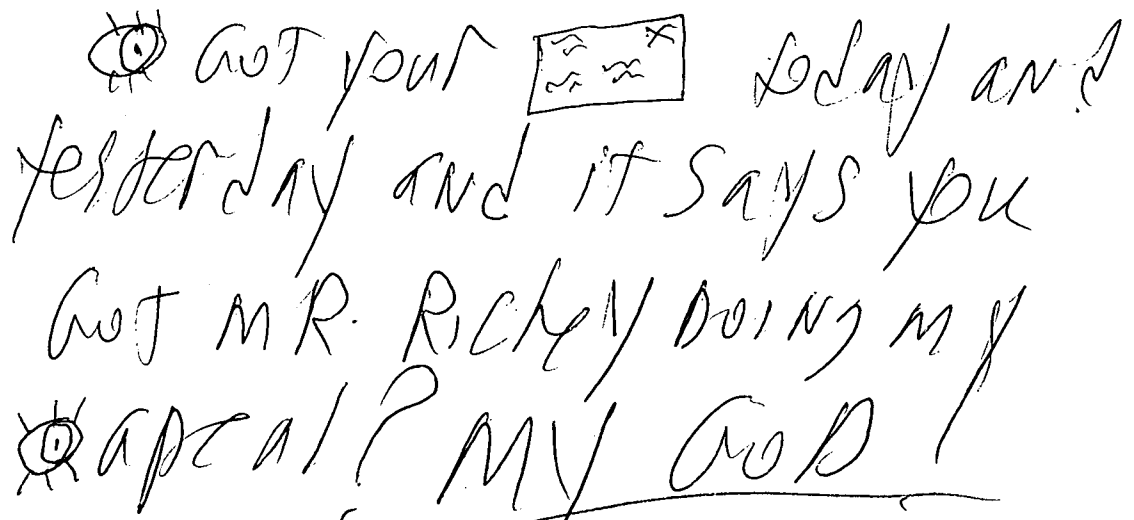 Got your today and
yesterday and it says you
Got MR. Richey Doing my
apeal? MY GOD!